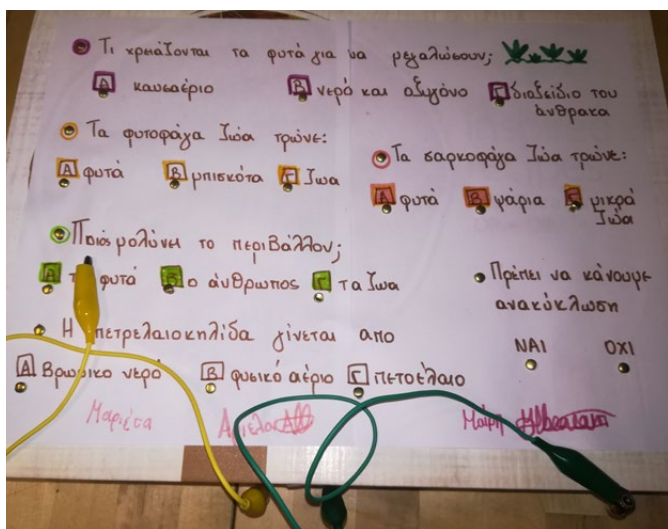 Τι χρειάζονται τα φυτά για να μεγαλώσουν;
Α καυσαέριο Β νερό και οξυγόνο Γ διοξείδιο του άνθρακα
Τα φυτοφάγα ζώα τρώνε:
Α φυτά Β μπισκότα Γ ζωα
Τα σαρκοφάγα ζώα τρώνε:
Α φυτά Β ψάρια Γ μικρά ζώα
Ποιός μολύνει το περιβάλλον;
Α φυτά Β ο άνθρωπος Γ τα ζωα
Πρέπει να κάνουμε
ανακύκλωση
ΝΑΙ ΟΧΙ
Η πετρελαιοκηλίδα γίνεται απο
Α βρωμικο νερό Β φυσικό αέριο Γ πετοέλαιο
Μαριέτα Μαίρη